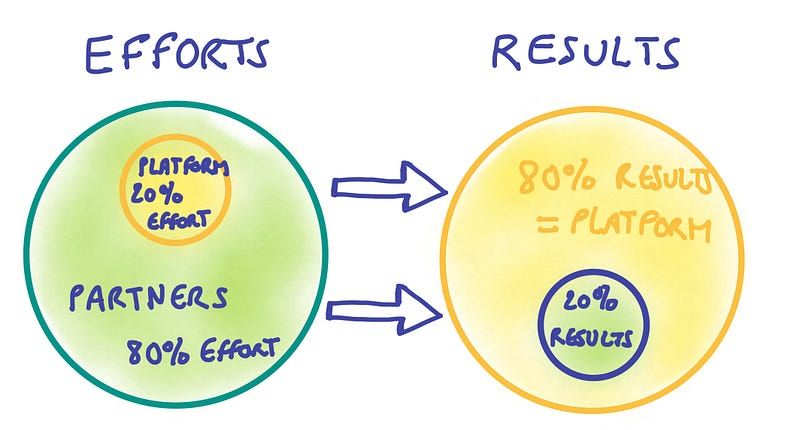 EFFORTS
RESULTS
PLATFORM
20%
EFFORT
PARTNERS
80% EFFORT
80% RESULTS
= PLATFORM
20%
RESULTS